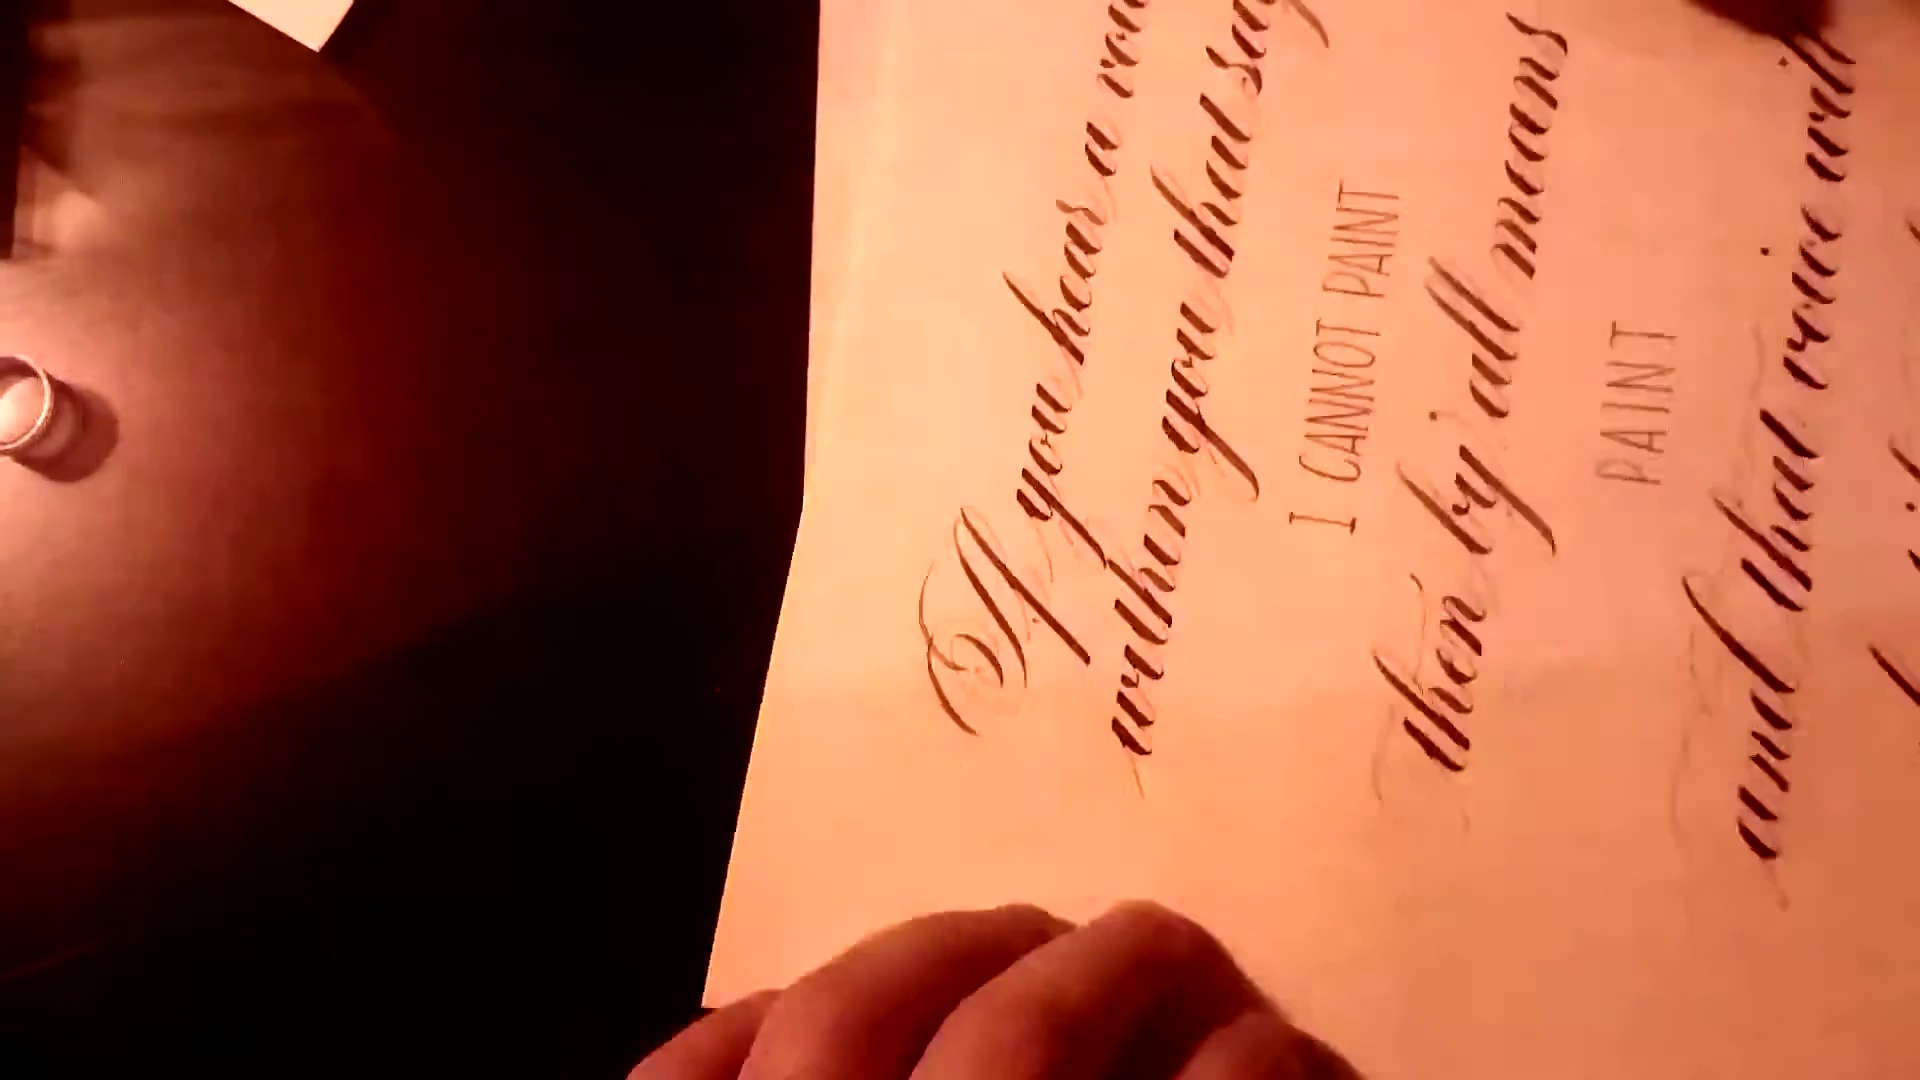 If you hear a
within you that say
I CANNOT PAINT
then by all means
PAINT
and that voice will